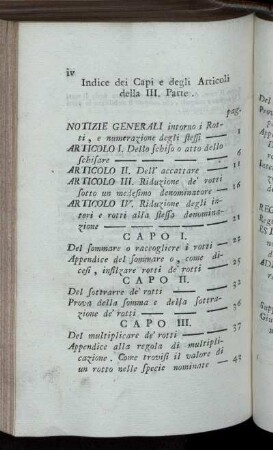 iv
Indice dei Capi e degli Articoli
della III. Parte.
pag.
NOTIZIE GENERALI intorno i Rot-
ti, e numerazione degli stessi — 1
ARTICOLO I. Dello schiso o atto dello
schisare — 6
ARTICOLO II. Dell' accattare — 11
ARTICOLO III. Riduzione de' rotti
sotto un medesimo denominatore — 16
ARTICOLO IV. Riduzione degli in-
teri e rotti alla stessa denomina-
zione
CAPO I.
Del sommare o raccogliere i rotti — 22
Appendice del sommare o, come di-
cesi, infilzare rotti de' rotti — 25
CAPO II.
Del sottrarre de' rotti — 32
Prova della somma e della sottra-
zione de' rotti — 36
CAPO III.
Del multiplicare de' rotti — 37
Appendice alla regola di multipli-
cazione. Come trovisi il valore di
un rotto nelle specie nominate — 43